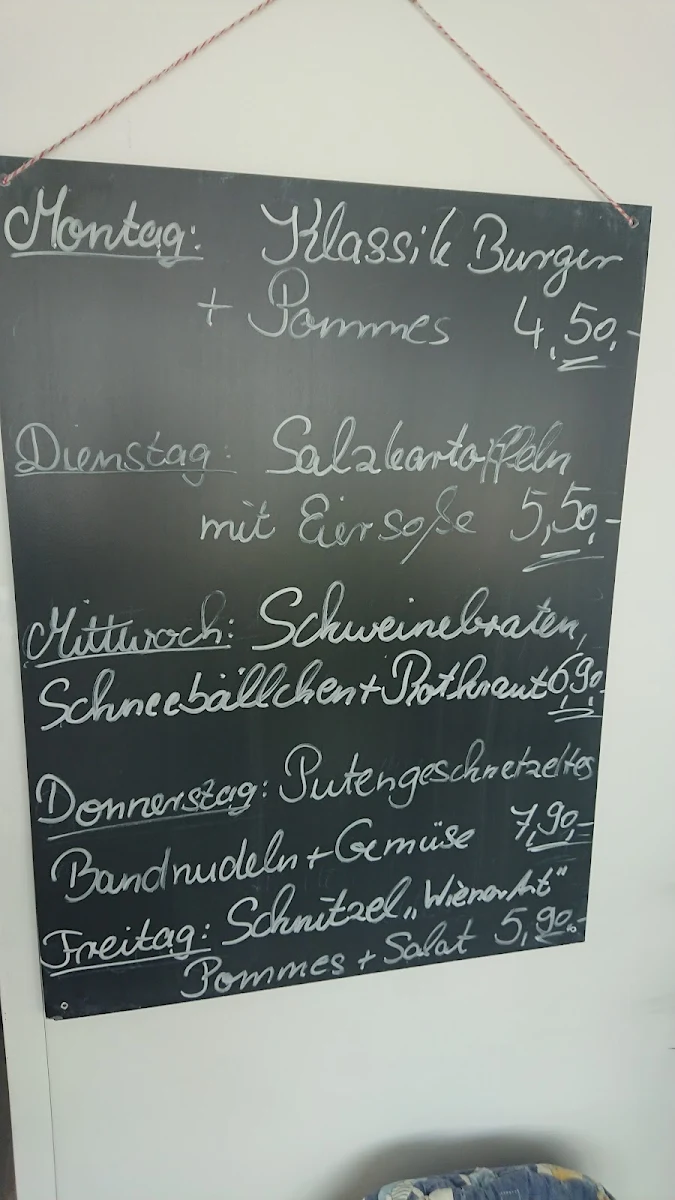 Montag: Klassik Burger
+ Pommes 4,50,-
Dienstag: Salzkartoffeln
mit Eiersoße 5,50,-
Mittwoch: Schweinebraten,
Schneebällchen + Rotkraut 6,90,-
Donnerstag: Putengeschnetzeltes
Bandnudeln + Gemüse 7,90,-
Freitag: Schnitzel „Wiener Art"
Pommes + Salat 5,90,-